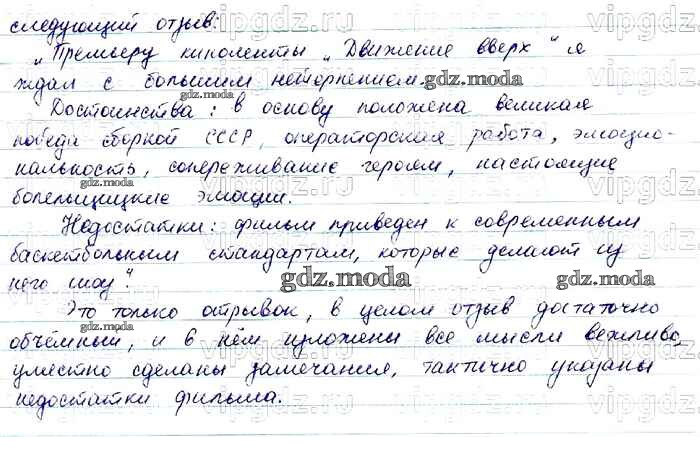 следующий отзыв:
„Премьеру киноленты „Движение вверх" я
ждал с большим нетерпением.
Достоинства: в основу положена великая
победа сборной СССР, операторская работа, эмоцио-
нальность, сопереживание героям, настоящие
болельщицкие эмоции.
Недостатки: фильм приведен к современным
баскетбольным стандартам, которые делают из
него шоу".
Это только отрывок, в целом отзыв достаточно
объёмный, и в нём изложены все мысли вежливо,
уместно сделаны замечания, тактично указаны
недостатки фильма.
gdz.moda
gdz.moda
gdz.moda
gdz.moda
gdz.moda
vipgdz.ru